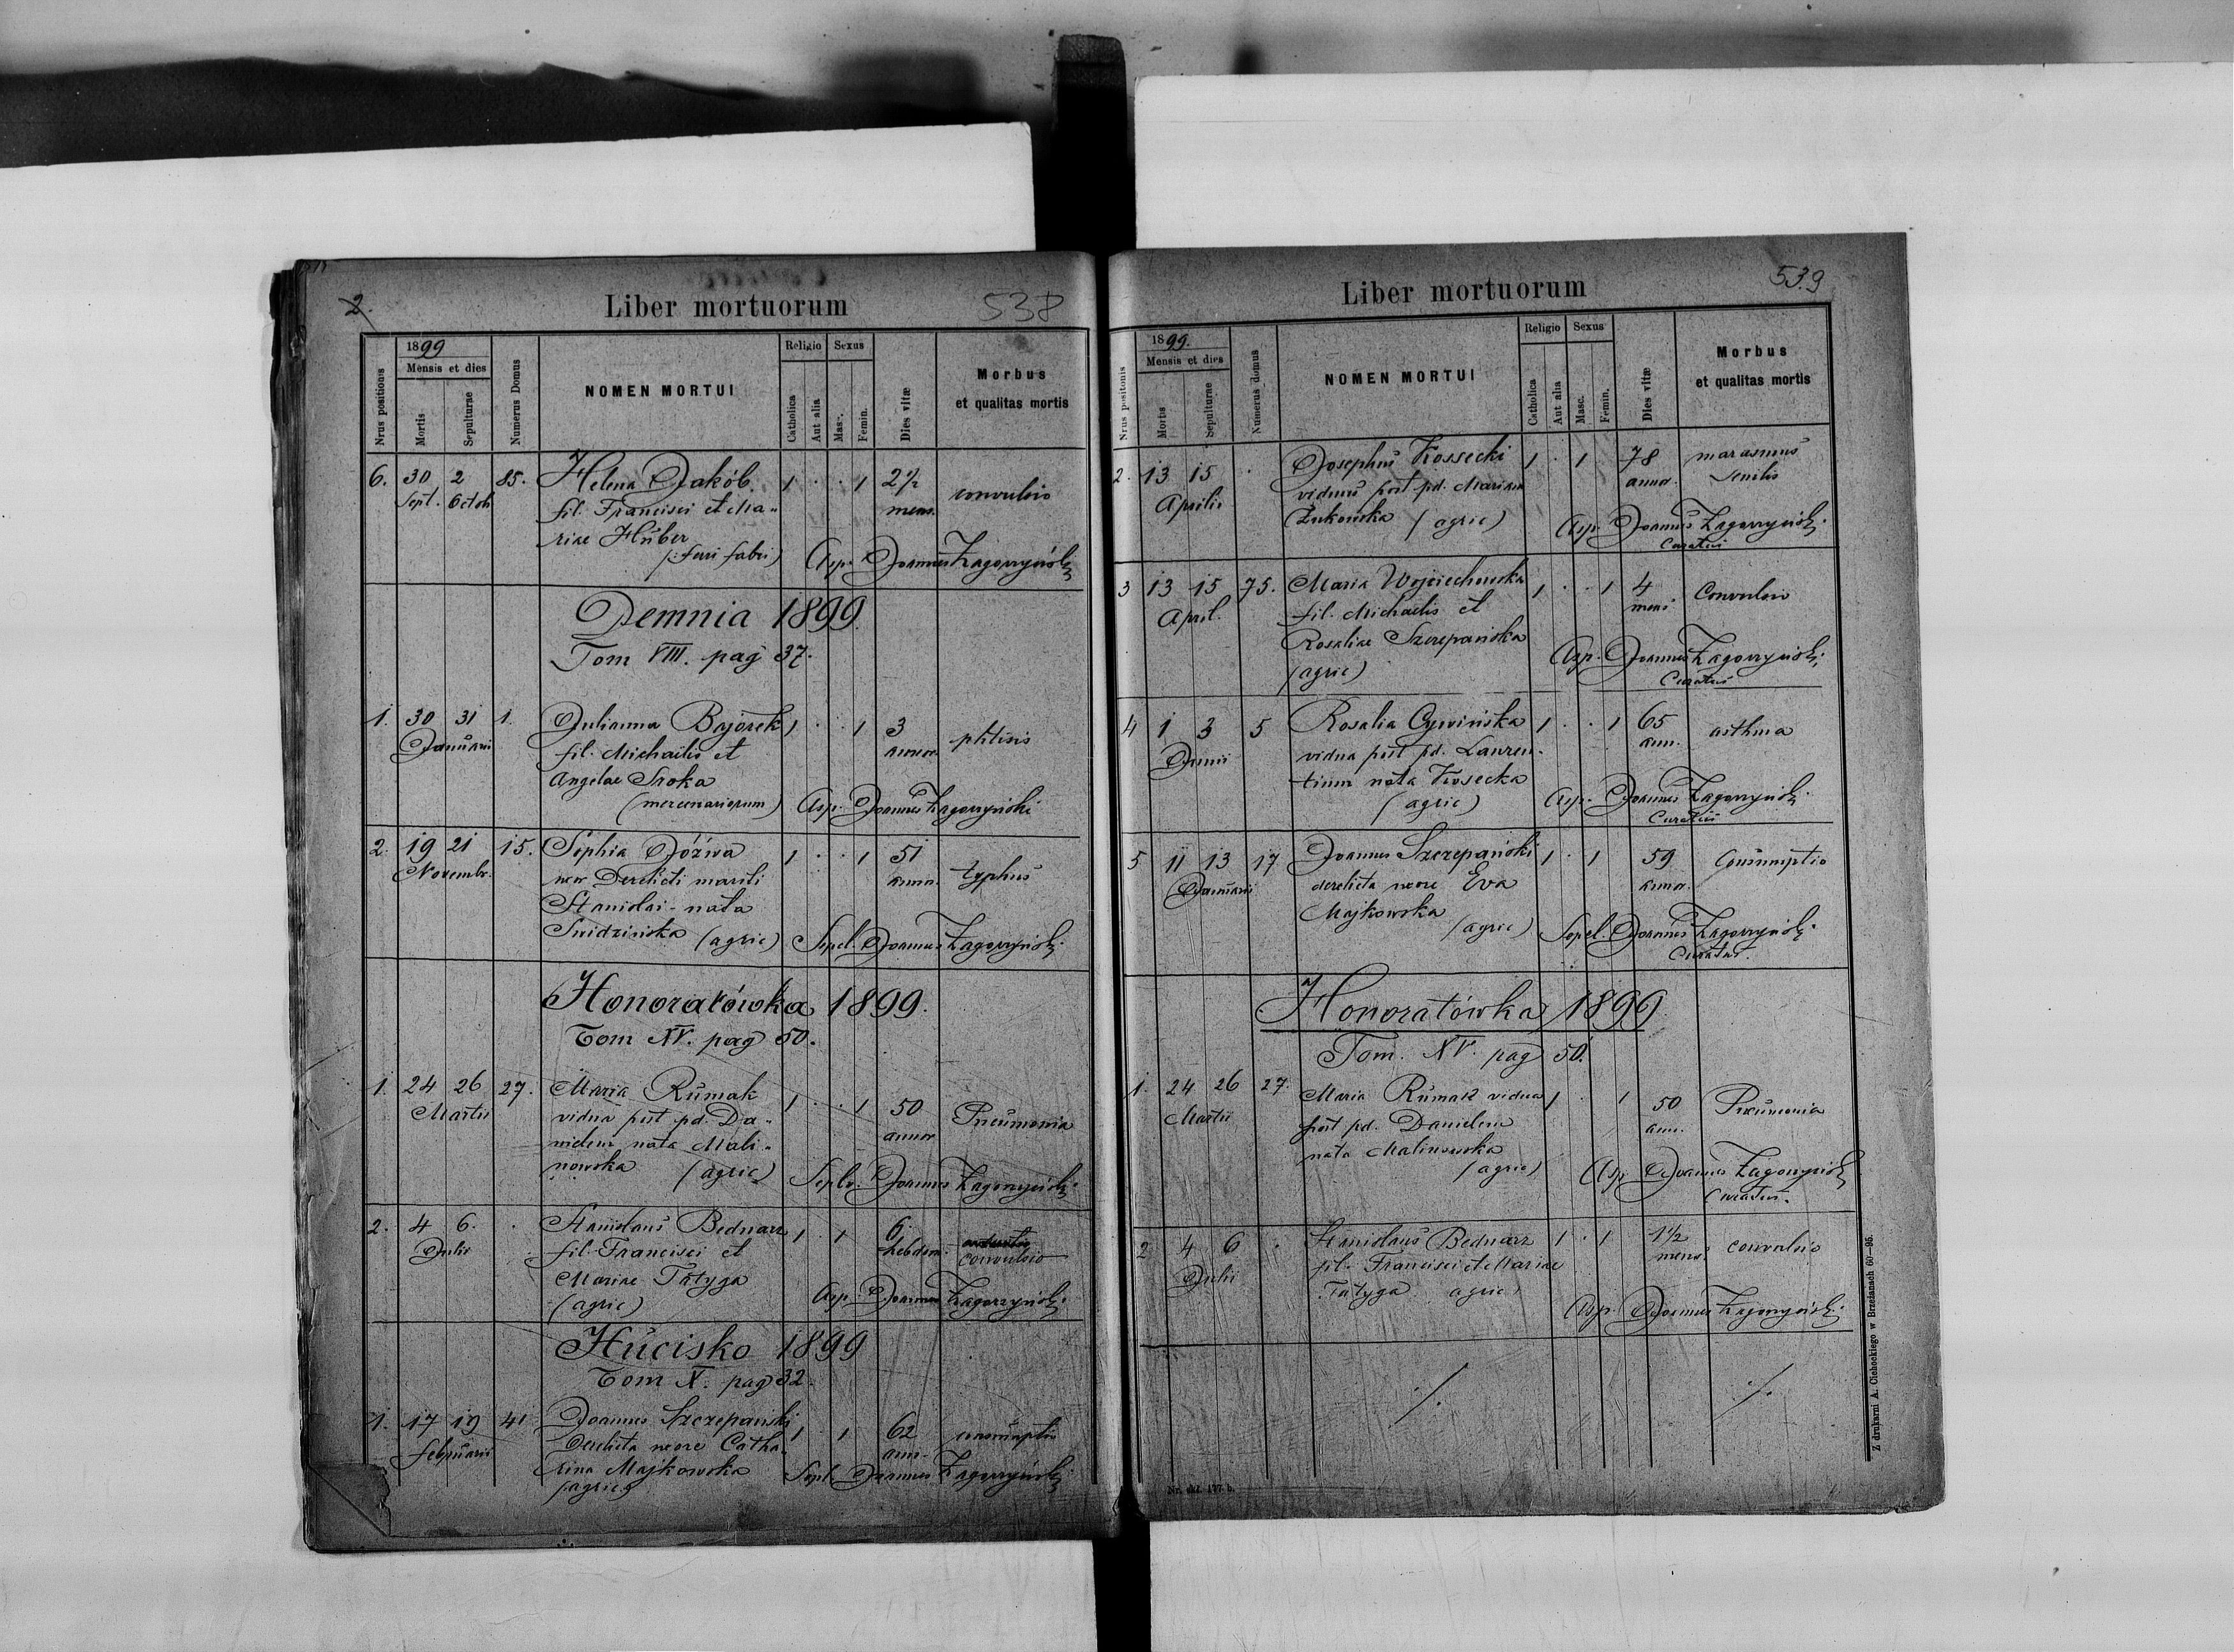 2.
Liber mortuorum
538
1899
Mensis et dies
Religio
Sexus
Nrus positionis
Mortis
Sepulturae
Numerus Domus
NOMEN MORTUI
Catholica
Aut alia
Mas.
Femin.
Dies vitæ
Morbus
et qualitas mortis
6. 30 2 85. Helena Jakób 1 . . 1 2½ convulsio
Sept. Octob fil. Francisci et Ma- mens.
riae Hüber
(ferri fabri) Asp. Joannes Zagorzyński
Demnia 1899
Tom VIII. pag 37.
1. 30 31 1. Julianna Bajorek 1 . . 1 3 phtisis
Januarii fil. Michaelis et annor.
Angelae Sroka
(mercenariorum) Asp. Joannes Zagorzyński
2. 19 21 15. Sophia Józwa 1 . . 1 51 typhus
Novembr. uxor Derelicti mariti annor.
Stanislai - nata
Swidzińska (agric) Sepel. Joannes Zagorzyński
Honoratówka 1899.
Tom XV. pag 50.
1. 24 26 27. Maria Rumak 1 . . 1 50 Pneumonia
Martii vidua post pd. Da- annor
nielem nata Mali-
nowska (agric) Joannes Zagorzyński
2. 4 6. . Stanislaus Bednarz 1 . 1 6
Julii fil. Francisci et hebdom. convulsio
Mariae Tatyga
(agric) Asp. Joannes Zagorzyński
Hucisko 1899
Tom X. pag 32.
1. 17 19 41 Joannes Szczepański 1 . 1 62 consumptio
Februarii Derelicta uxore Catha- ann.
rina Majkowska Sepel. Joannes Zagorzyński
(agric)
Liber mortuorum
539
1899.
Mensis et dies
Religio
Sexus
Nrus positonis
Mortis
Sepulturae
Numerus domus
NOMEN MORTUI
Catholica
Aut alia
Masc.
Femin.
Dies vitæ
Morbus
et qualitas mortis
2. 13 15 . Josephus Kossecki 1 . 1 78 marasmus
Aprilis viduus post pd. Mariam annor. senilis
Żukowska (agric) Asp. Joannes Zagorzyński
Curatus
3 13 15 75. Maria Wojciechowska 1 . . 1 4 Convulsio
April. fil. Michaelis et mens.
Rosaliae Szczepańska
(agric) Asp. Joannes Zagorzyński
Curatus
4 1 3 5 Rosalia Cywińska 1 . . 1 65 asthma
Junii vidua post pd. Lauren- ann.
tium nata Kosecka
(agric) Asp. Joannes Zagorzyński
Curatus
5 11 13 17 Joannes Szczepański 1 . 1 59 Consumptio
Januarii derelicta uxore Eva annor.
Majkowska
(agric) Sepel. Joannes Zagorzyński
Curatus.
Honoratówka 1899
Tom. XV. pag 50.
1. 24 26 27. Maria Rumak vidua 1 . 1 50 Pneumonia
Martii post pd. Danielem ann.
nata Malinowska
(agric) Asp Joannes Zagorzyński
Curatus.
2 4 6 . Stanislaus Bednarz 1 . 1 1½ convulsio
Julii fil. Francisci et Mariae mens.
Tatyga agric
Asp. Joannes Zagorzyński
Z drukarni A. Cichockiego w Brzeżanach 60—95.